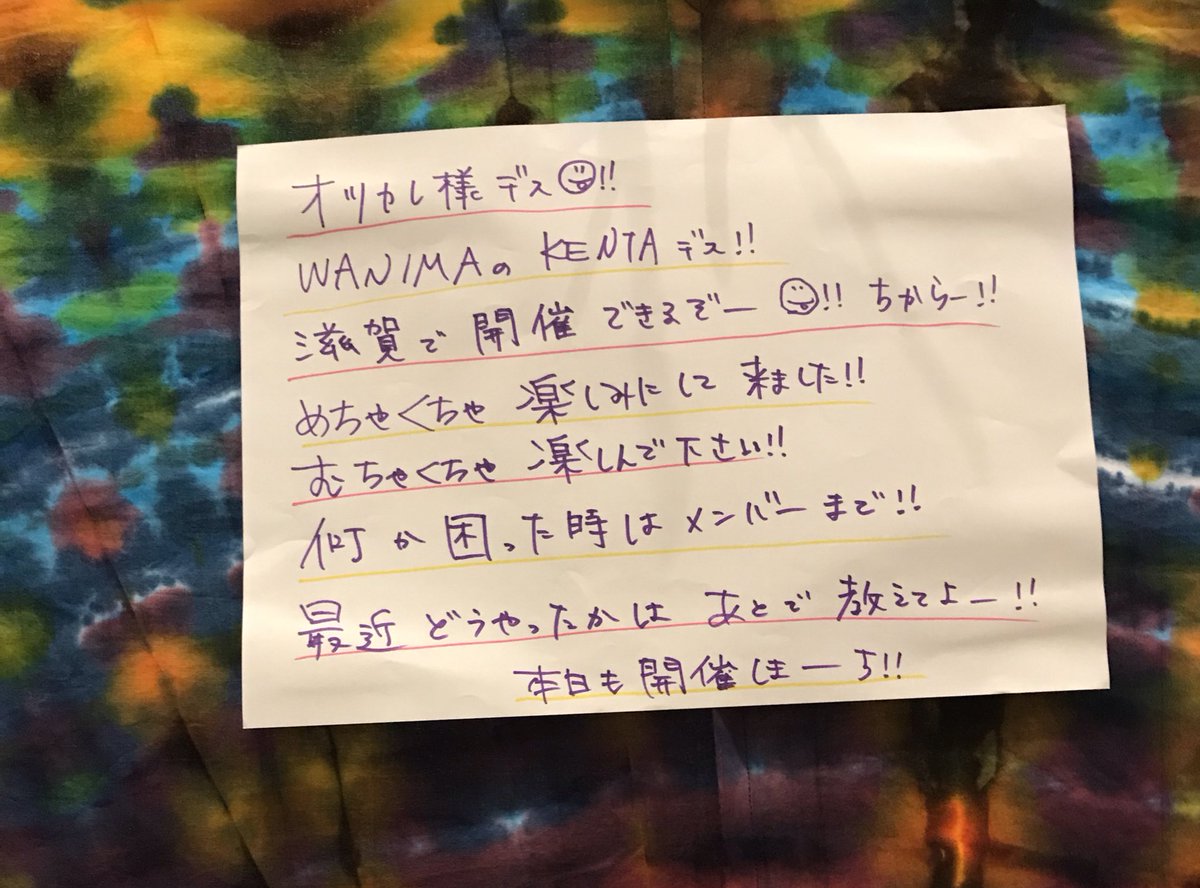 オツカレ様デス!!
WANIMAの KENTAデス!!
滋賀で開催できるぞー!! ちからー!!
めちゃくちゃ楽しみにして来ました!!
むちゃくちゃ楽しんで下さい!!
何か困った時はメンバーまで!!
最近どうやったかはあとで教えてよー!!
本日も開催しまーす!!